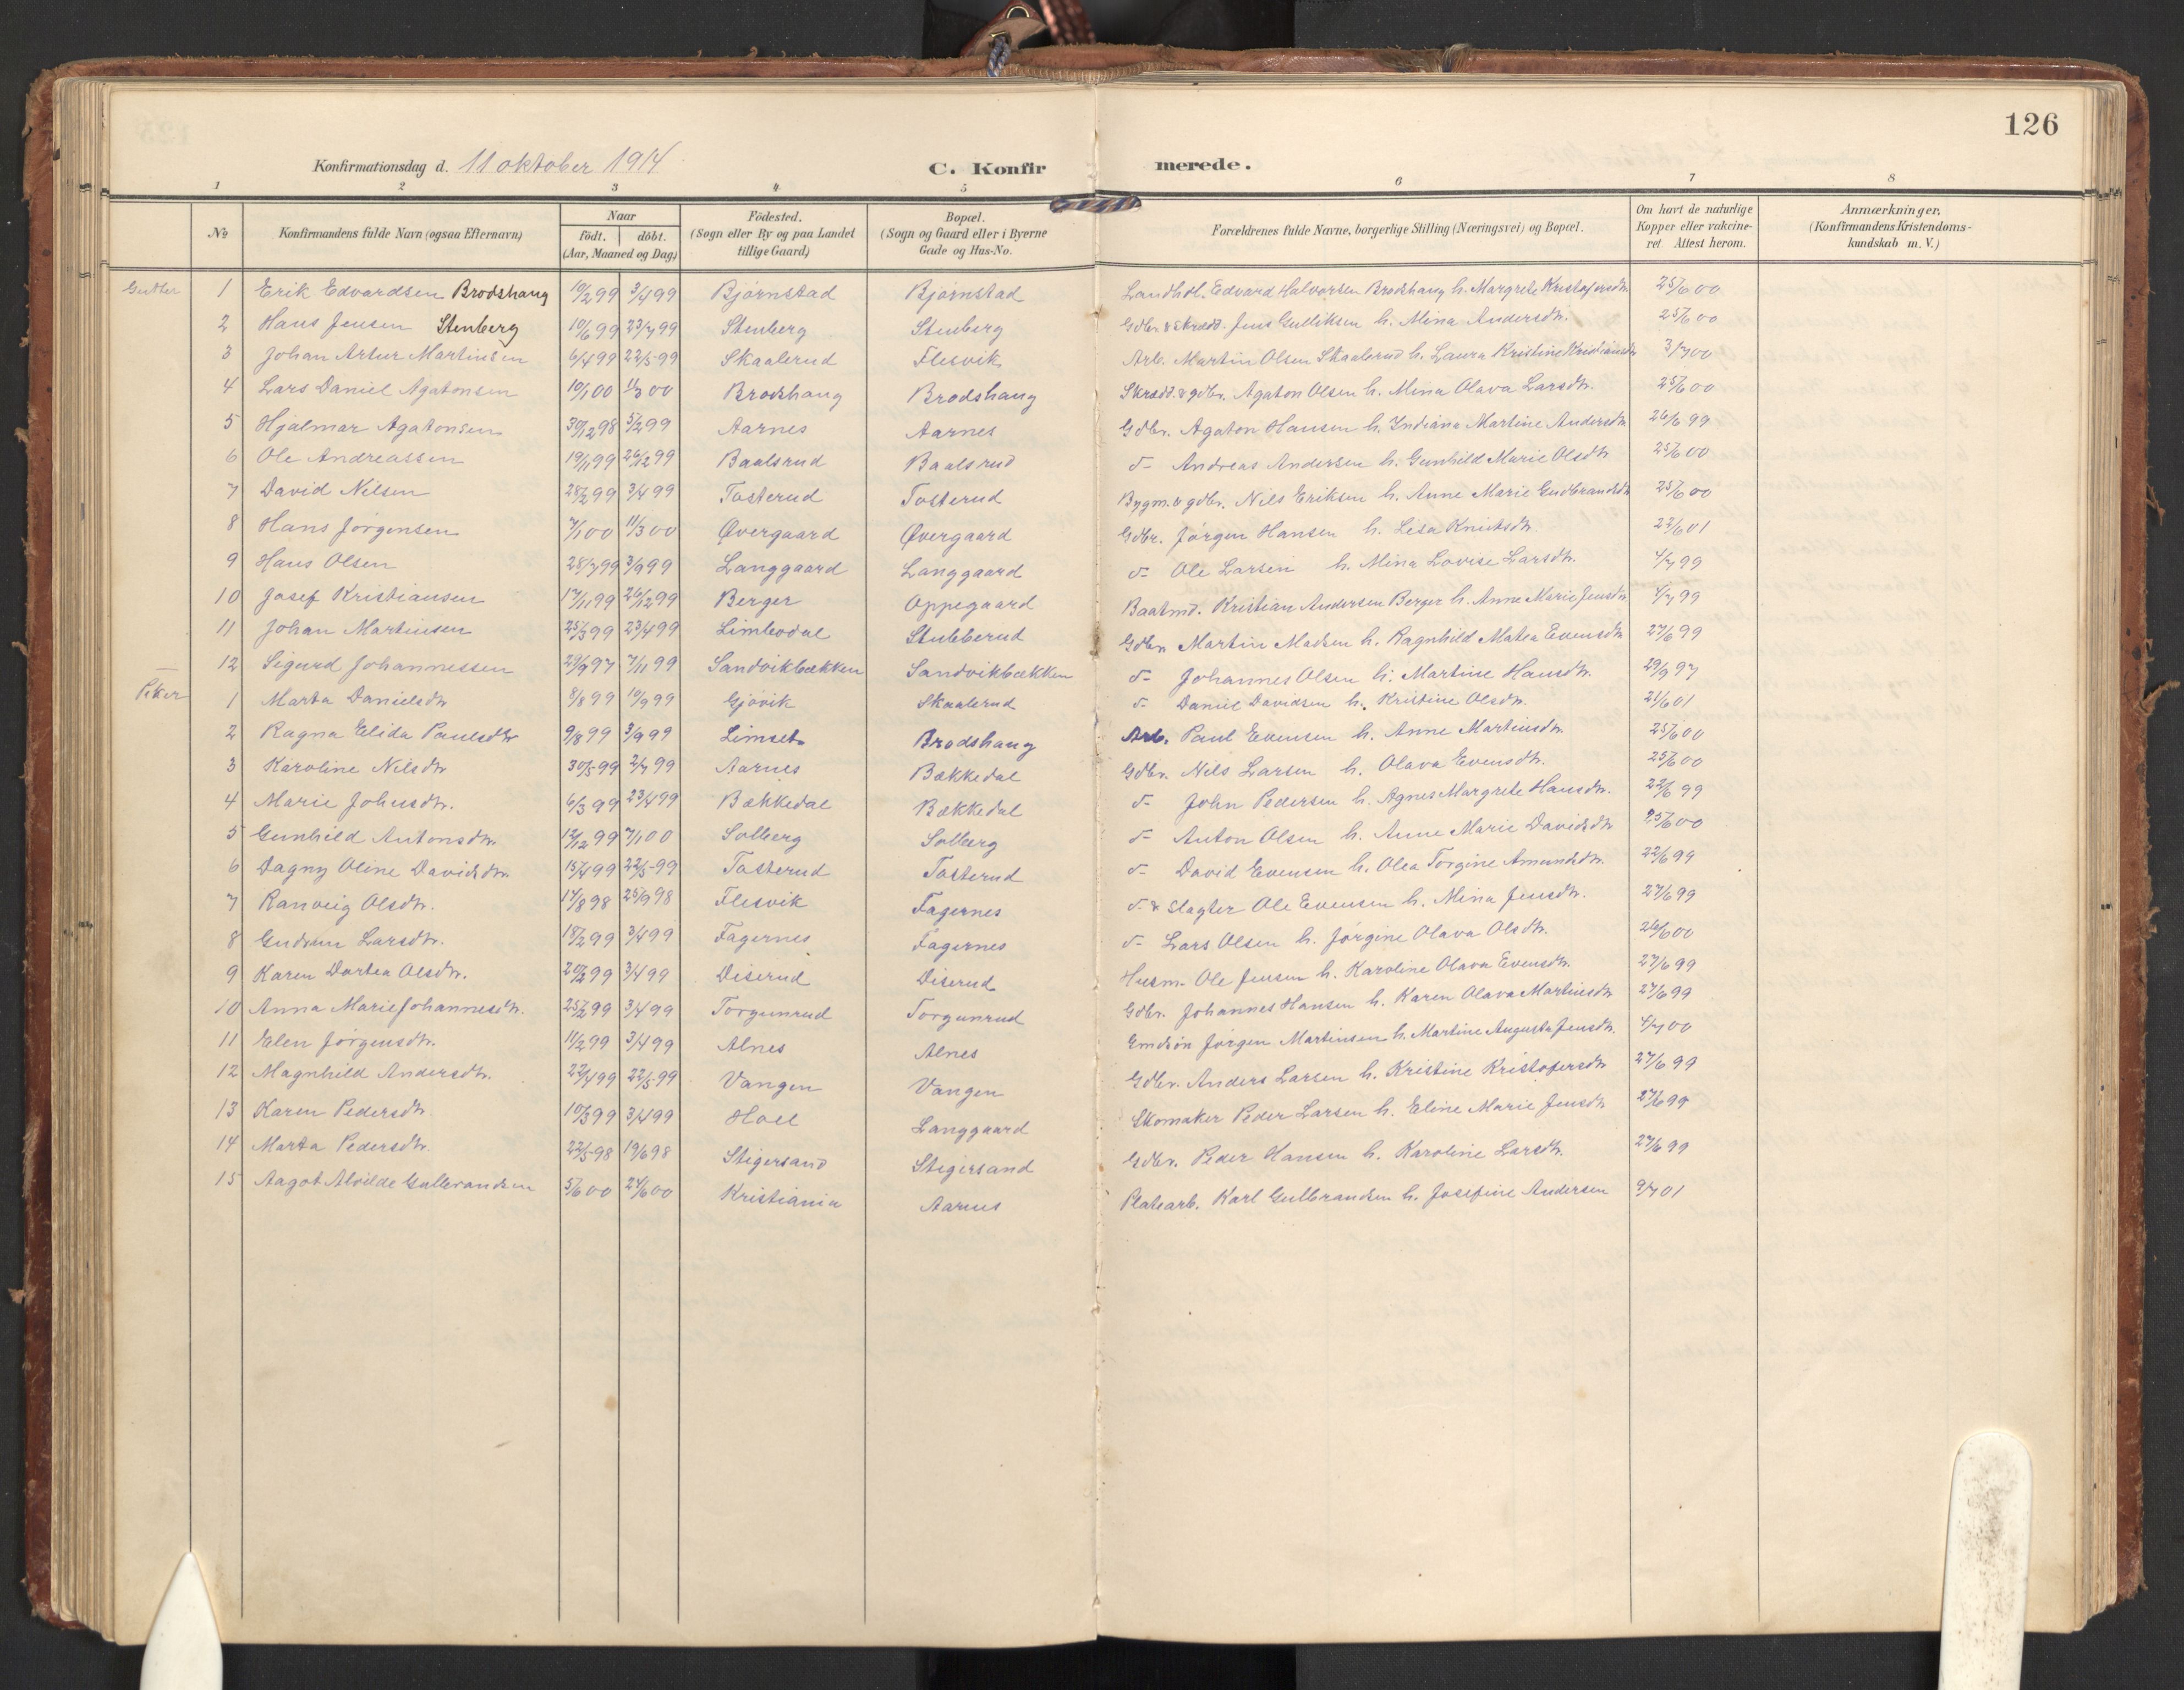 126
Konfirmationsdag d. 11 oktober 1914 C. Konfir merede.
1 2 3 4 5 6 7 8
№ Konfirmandens fulde Navn (ogsaa Efternavn) Naar födt. döbt. (Aar, Maaned og Dag) Födested. (Sogn eller By og paa Landet tillige Gaard) Bopæl. (Sogn og Gaard eller i Byerne Gade og Hus-No. Forældrenes fulde Navne, borgerlige Stilling (Næringsvei) og Bopæl. Om havt de naturlige Kopper eller vakcineret Attest herom. Anmærkninger. (Konfirmandens Kristendomskundskab m. V.)
Gutter 1 Erik Edvardsen Brodshaug 10/2 99 3/4 99 Bjørnstad Bjørnstad Landhdl. Edvard Halvorsen Brodshaug h. Margrete Kristofersdtr 25/6 00
2 Hans Jensen Stenberg 10/6 99 23/7 99 Stenberg Stenberg Gdbr. & skrædd. Jens Gulliksen h. Mina Andersdtr. 25/6 00
3 Johan Artur Martinsen 6/4 99 22/5 99 Skaalerud Flesvik Arb. Martin Olsen Skaalerud h. Laura Kristine Kristiansdtr 3/7 00
4 Lars Daniel Agatonsen 10/1 00 11/3 00 Brodshaug Brodshaug Skrædd. & gdbr. Agaton Olsen h. Mina Olava Larsdtr. 25/6 00
5 Hjalmar Agatonsen 30/12 98 5/2 99 Aarnes Aarnes Gdbr. Agaton Hansen h. Indiana Martine Andersdtr 26/6 99
6 Ole Andreassen 19/11 99 26/12 99 Baalsrud Baalsrud d- Andreas Andersen h. Gunhild Marie Olsdtr 25/6 00
7 David Nilsen 28/2 99 3/4 99 Tosterud Tosterud Bygm. & gdbr. Nils Eriksen h. Anne Marie Gudbrandsdtr 25/6 00
8 Hans Jørgensen 7/1 00 11/3 00 Øvergaard Øvergaard Gdbr. Jørgen Hansen h. Lisa Knutsdtr. 22/6 01
9 Hans Olsen 28/7 99 3/9 99 Langgaard Langgaard d- Ole Larsen h. Mina Lovise Larsdtr. 4/7 99
10 Josef Kristiansen 17/11 99 26/12 99 Berger Oppegaard Baatmd. Kristian Andersen Berger h. Anne Marie Jensdtr 4/7 99
11 Johan Martinsen 25/3 99 23/4 99 Limbodal Stubberud Gdbr. Martin Madsen h. Ragnhild Matea Evensdtr 27/6 99
12 Sigurd Johannessen 29/9 97 7/11 99 Sandvikbækken Sandvikbækken d- Johannes Olsen h. Martine Hansdtr. 29/9 97
Piker 1 Marta Danielsdtr 8/8 99 10/9 99 Gjøvik Skaalerud d- Daniel Davidsen h. Kristine Olsdtr. 21/6 01
2 Ragna Elida Paulsdtr 9/8 99 3/9 99 Limset Brodshaug Arb. Paul Evensen h. Anne Martinsdtr. 25/6 00
3 Karoline Nilsdtr 30/5 99 2/7 99 Aarnes Bækkedal Gdbr. Nils Larsen h. Olava Evensdtr. 25/6 00
4 Marie Johnsdtr. 6/3 99 23/4 99 Bækkedal Bækkedal d- John Pedersen h. Agnes Margrete Hansdtr. 22/6 99
5 Gunhild Antonsdtr. 12/12 99 7/1 00 Solberg Solberg d- Anton Olsen h. Anne Marie Davidsdtr 25/6 00
6 Dagny Oline Davidsdtr. 15/4 99 22/5 99 Tosterud Tosterud d- David Evensen h. Olea Torgine Amundsdtr. 22/6 99
7 Ranveig Olsdtr. 14/8 98 25/9 98 Flesvik Fagernes d- & Slagter Ole Evensen h. Mina Jensdtr. 27/6 99
8 Gudrun Larsdtr. 18/2 99 3/4 99 Fagernes Fagernes d- Lars Olsen h. Jørgine Olava Olsdtr. 26/6 00
9 Karen Dortea Olsdtr. 20/2 99 3/4 99 Diserud Diserud Husm. Ole Jensen h. Karoline Olava Evensdtr. 27/6 99
10 Anna Marie Johannesdtr. 25/2 99 3/4 99 Torgunrud Torgunrud Gdbr. Johannes Hansen h. Karen Olava Martinsdtr 27/6 99
11 Elen Jørgensdtr. 11/2 99 3/4 99 Alnes Alnes Jørgen Martinsen h. Martine Augusta Jensdtr. 4/7 00
12 Magnhild Andersdtr. 22/4 99 22/5 99 Vangen Vangen Gdbr. Anders Larsen h. Kristine Kristofersdtr 27/6 99
13 Karen Pedersdtr. 10/3 99 3/4 99 Hoel Langgaard Skomaker Peder Larsen h. Eline Marie Jensdtr 27/6 99
14 Marta Pedersdtr. 22/5 98 19/6 98 Stigersand Stigersand Gdbr. Peder Hansen h. Karoline Larsdtr. 27/6 99
15 Aagot Alvilde Gulbrandsen 5/6 00 24/6 00 Kristiania Aarnes Platearb. Karl Gulbrandsen h. Josefine Andersen 9/7 01